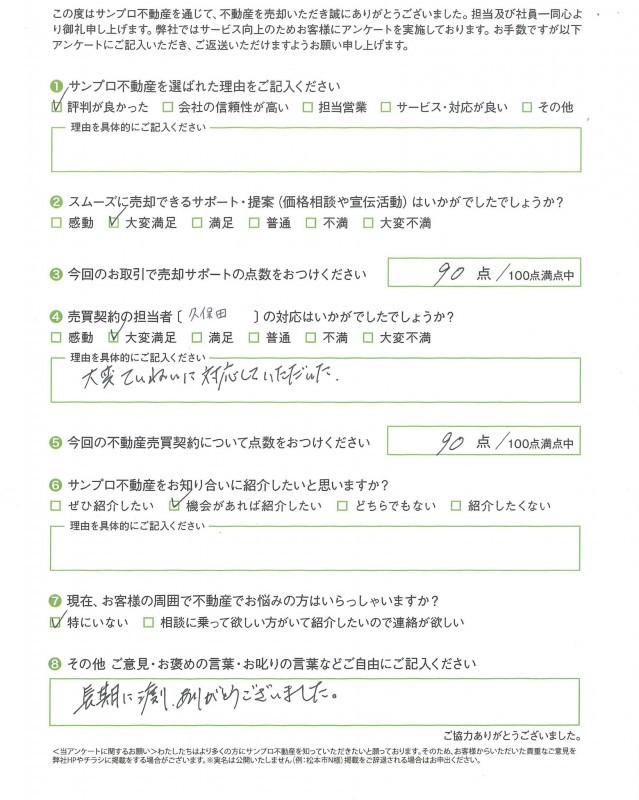 この度はサンプロ不動産を通じて、不動産を売却いただき誠にありがとうございました。担当及び社員一同心よ
り御礼申し上げます。弊社ではサービス向上のためお客様にアンケートを実施しております。お手数ですが以下
アンケートにご記入いただき、ご返送いただけますようお願い申し上げます。
❶ サンプロ不動産を選ばれた理由をご記入ください
☑ 評判が良かった □ 会社の信頼性が高い □ 担当営業 □ サービス・対応が良い □ その他
理由を具体的にご記入ください
❷ スムーズに売却できるサポート・提案(価格相談や宣伝活動)はいかがでしたでしょうか?
□ 感動 ☑ 大変満足 □ 満足 □ 普通 □ 不満 □ 大変不満
❸ 今回のお取引で売却サポートの点数をおつけください 90 点/100点満点中
❹ 売買契約の担当者〔 久保田 〕の対応はいかがでしたでしょうか?
□ 感動 ☑ 大変満足 □ 満足 □ 普通 □ 不満 □ 大変不満
理由を具体的にご記入ください
大変ていねいに対応していただいた.
❺ 今回の不動産売買契約について点数をおつけください 90 点/100点満点中
❻ サンプロ不動産をお知り合いに紹介したいと思いますか?
□ ぜひ紹介したい ☑ 機会があれば紹介したい □ どちらでもない □ 紹介したくない
理由を具体的にご記入ください
❼ 現在、お客様の周囲で不動産でお悩みの方はいらっしゃいますか?
☑ 特にいない □ 相談に乗って欲しい方がいて紹介したいので連絡が欲しい
❽ その他 ご意見・お褒めの言葉・お叱りの言葉などご自由にご記入ください
長期に渡り、ありがとうございました。
ご協力ありがとうございました。
<当アンケートに関するお願い>わたしたちはより多くの方にサンプロ不動産を知っていただきたいと願っております。そのため、お客様からいただいた貴重なご意見を
弊社HPやチラシに掲載をする場合がございます。※実名は公開いたしません(例:松本市N様)掲載をご辞退される場合はお申出ください。